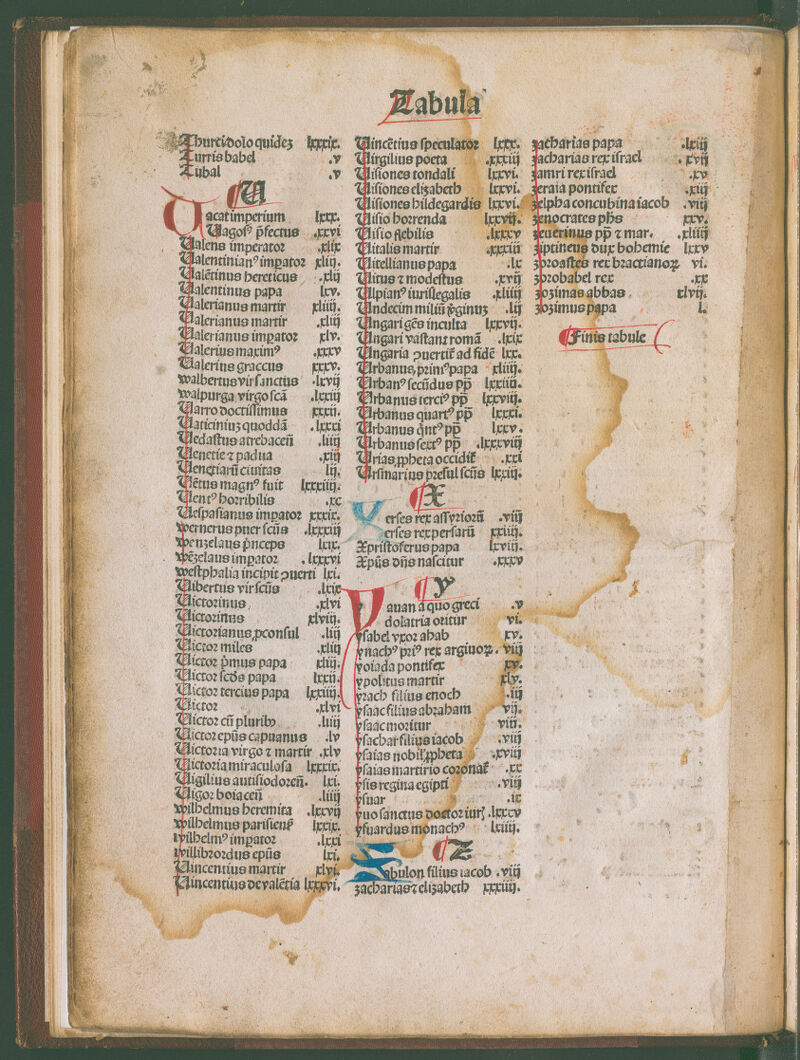 Tabula
Thurcī dolo quidē lxxxix.
Turris babel .v
Tubal .v
U
Vacat imperium lxx.
Vagosꝰ p̄fectus .xxvi
Valens imperator .xlix
Valentinianꝰ imꝑator xliij.
Valētinus hereticus .xlij
Valentinus papa lxv.
Valerianus martir xliiij.
Valerianus martir .xliij
Valerianus imꝑator xlv.
Valerius maximꝰ .xxxv
Valerius graccus xxxv.
walbertus vir sanctus .lxvij
walpurga virgo scā .lxxiij
Varro doctissimus xxxij.
Vaticiniuꝫ quoddā .lxxxi
Vedastus atrebaceñ .liiij
Venetie ⁊ padua .xiij
Venetiarū ciuitas lij.
Vētus magnꝰ fuit lxxxiiij.
Ventꝰ horribilis .xc
Vespasianus imꝑator xxxix.
wernerus puer scūs .lxxxiij
wenzelaus p̄nceps lxix.
wēzelaus imꝑator .lxxxvi
westphalia incipit ꝯuerti lxi.
Vibertus vir scūs .lxix
Victorinus .xlvi
Victorinus xlviij.
Victorianus ꝓconsul .liij
Victor miles .xliij
Victor p̄mus papa xliij.
Victor scd̄s papa lxxij.
Victor tercius papa lxxiiij.
Victor .xlvi
Victor cū pluribꝰ .luij
Victor ep̄us capuanus .lv
Victoria virgo ⁊ martir .xlv
Victoria miraculosa lxxxix.
Vigilius autisiodoreñ. lxi.
Vigor boiaceñ .liiij
wilhelmus heremita .lxxvij
wilhelmus parisienẜ lxxix.
wilhelmꝰ imꝑator .lxxxi
willibrordus ep̄us lxi.
Vincentius martir xlvi.
Vincentius de valētia lxxxvi.
Vincētius speculator lxxx.
Virgilius poeta .xxxiij
Visiones tondali lxxvi.
Visiones elizabeth lxxvi.
Visiones hildegardis lxxvi.
Visio horrenda lxxvij.
Visio flebilis .lxxxv
Vitalis martir .xxxiij
Vitellianus papa .lx
Vitus ⁊ modestus .xvij
Vlpianꝰ iurislegalis .xliiij
Vndecim miliū v̄ginuꝫ .lij
Vngari gēs inculta lxxvij.
Vngari vastant romā .lxix
Vngaria ꝯuertit̄ ad fidē lxx.
Vrbanus prim̄ papa xliiij.
Vrbanꝰ secūdus pp̄ lxxiiij.
Vrbanus terciꝰ pp̄ lxxviij.
Vrbanus quartꝰ pp̄ lxxxi.
Vrbanus q̄ntꝰ pp̄ lxxv.
Vrbanus sextꝰ pp̄ .lxxxviij
Vrias ꝓpheta occidit̄ .xxi
Vrsmarius presul scūs lxxiij.
X
Xerses rex assyriorū .viij
Xerses rex persarū xxiiij.
Xpristoferus papa lxviij.
Xpūs dn̄s nascitur .xxxv
Y
Yauan a quo greci .v
ydolatria oritur vi.
ysabel vxor ahab xv.
ynachꝰ priꝰ rex argiuoꝝ. viij
yoiada pontifex xv.
ypolitus martir xlv.
yrach filius enoch .iij
ysaac filius abraham vij.
ysaac moritur viij.
ysachar filius iacob .viij
ysaias nobilꝭ ꝓpheta .xviij
ysaias martirio coronat̄ .xx
ysis regina egipti .viij
ysuar .ix
yuo sanctus doctor iurꝭ .lxxxv
ysuardus monachꝰ lxiiij.
Z
Zabulon filius iacob .viij
zacharias ⁊ elizabeth xxxiij.
zacharias papa .lxiij
zacharias rex israel .xvij
zamri rex israel .xv
zeraia pontifex .xiij
zelpha concubina iacob .viij
zenocrates ph̄s xxv.
zeuerinus pp̄ ⁊ mar. .xliiij
ziptineus dux bohemie lxxv
zoroastes rex bractianoꝝ vi.
zorobabel rex .xx
zozimas abbas xlvij.
zozimus papa l.
Finis tabule